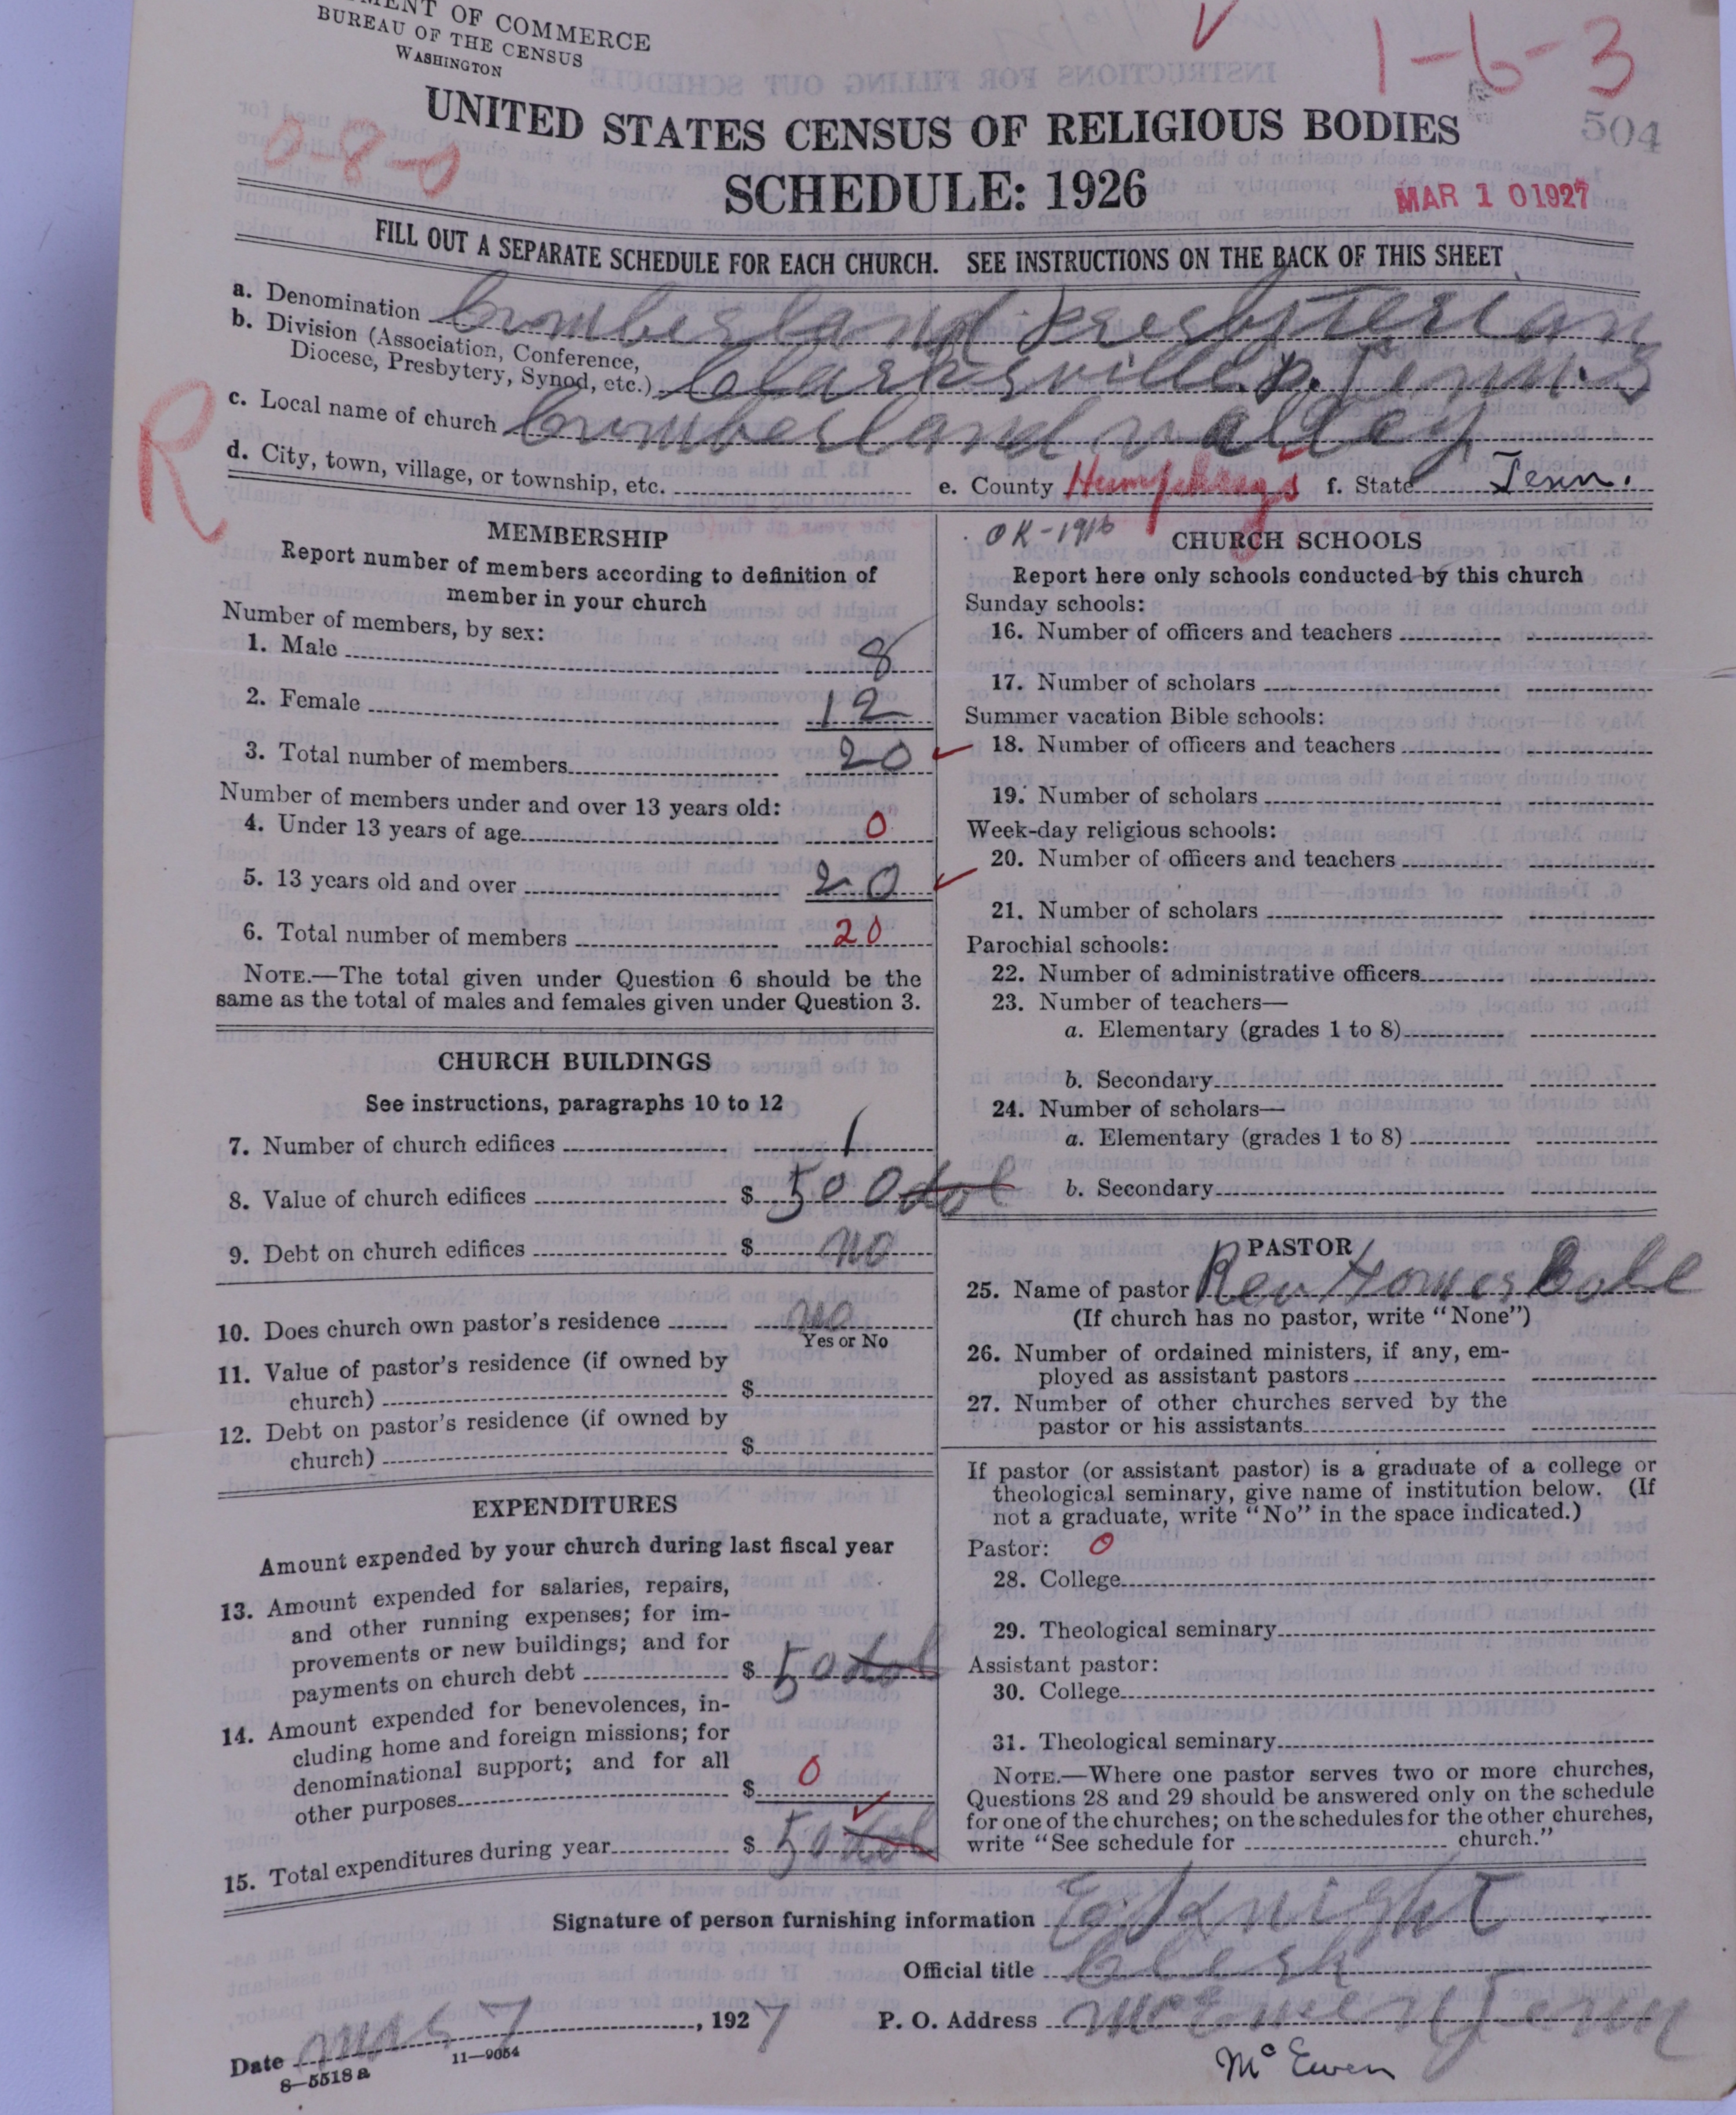 MENT OF COMMERCE
BUREAU OF THE CENSUS
WASHINGTON
1-6-3
504
0-8-0
UNITED STATES CENSUS OF RELIGIOUS BODIES
SCHEDULE: 1926
MAR 10 1927
FILL OUT A SEPARATE SCHEDULE FOR EACH CHURCH. SEE INSTRUCTIONS ON THE BACK OF THIS SHEET
a. Denomination Cumberland Presbyterian
b. Division (Association, Conference,
Diocese, Presbytery, Synod, etc.) Clarksville P. Tenn. S
c. Local name of church Cumberland valley
d. City, town, village, or township, etc.
e. County Humphreys f. State Tenn.
R
MEMBERSHIP
Report number of members according to definition of
member in your church
Number of members, by sex:
1. Male 8
2. Female 12
3. Total number of members 20
Number of members under and over 13 years old:
4. Under 13 years of age 0
5. 13 years old and over 20
6. Total number of members 20
NOTE.—The total given under Question 6 should be the
same as the total of males and females given under Question 3.
CHURCH BUILDINGS
See instructions, paragraphs 10 to 12
7. Number of church edifices 1
8. Value of church edifices $ 500 dol
9. Debt on church edifices $ no
10. Does church own pastor's residence no
Yes or No
11. Value of pastor's residence (if owned by
church) $
12. Debt on pastor's residence (if owned by
church) $
EXPENDITURES
Amount expended by your church during last fiscal year
13. Amount expended for salaries, repairs,
and other running expenses; for im-
provements or new buildings; and for
payments on church debt $ 50 dol
14. Amount expended for benevolences, in-
cluding home and foreign missions; for
denominational support; and for all
other purposes $ 0
15. Total expenditures during year $ 50 dol
OK-1916
CHURCH SCHOOLS
Report here only schools conducted by this church
Sunday schools:
16. Number of officers and teachers
17. Number of scholars
Summer vacation Bible schools:
18. Number of officers and teachers
19. Number of scholars
Week-day religious schools:
20. Number of officers and teachers
21. Number of scholars
Parochial schools:
22. Number of administrative officers
23. Number of teachers—
a. Elementary (grades 1 to 8)
b. Secondary
24. Number of scholars—
a. Elementary (grades 1 to 8)
b. Secondary
PASTOR
25. Name of pastor Rev Homer
(If church has no pastor, write "None")
26. Number of ordained ministers, if any, em-
ployed as assistant pastors
27. Number of other churches served by the
pastor or his assistants
If pastor (or assistant pastor) is a graduate of a college or
theological seminary, give name of institution below. (If
not a graduate, write "No" in the space indicated.)
Pastor: 0
28. College
29. Theological seminary
Assistant pastor:
30. College
31. Theological seminary
NOTE.—Where one pastor serves two or more churches,
Questions 28 and 29 should be answered only on the schedule
for one of the churches; on the schedules for the other churches,
write "See schedule for church."
Signature of person furnishing information Knight
Official title Clerk
Date 7, 1927
P. O. Address McEwen Tenn
McEwen
8—5518 a
11—9054